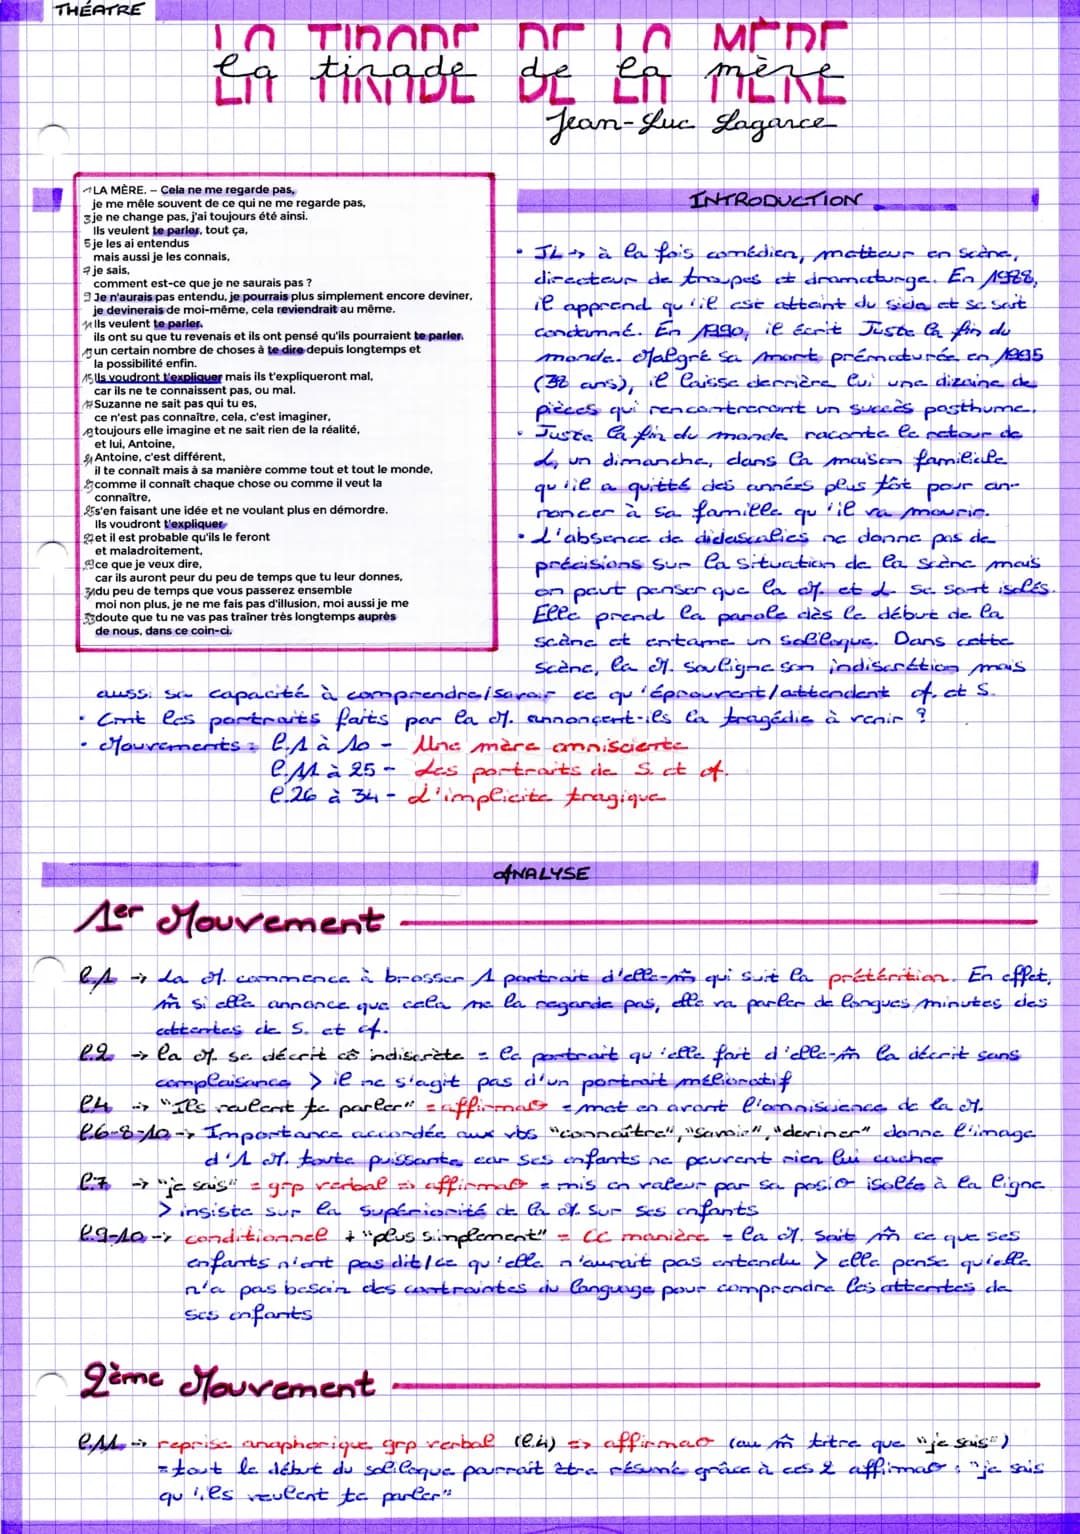 THÉATRE
LA TIRADE DE LA MÈRE
la tirade de la mère
Jean-Luc Lagarce
1 LA MÈRE. – Cela ne me regarde pas,
je me mêle souvent de ce qui ne me regarde pas,
3 je ne change pas, j'ai toujours été ainsi.
Ils veulent te parler, tout ça,
5 je les ai entendus
mais aussi je les connais,
7 je sais,
comment est-ce que je ne saurais pas ?
9 Je n'aurais pas entendu, je pourrais plus simplement encore deviner,
je devinerais de moi-même, cela reviendrait au même.
11 Ils veulent te parler,
ils ont su que tu revenais et ils ont pensé qu'ils pourraient te parler,
13 un certain nombre de choses à te dire depuis longtemps et
la possibilité enfin.
15 Ils voudront t'expliquer mais ils t'expliqueront mal,
car ils ne te connaissent pas, ou mal.
17 Suzanne ne sait pas qui tu es,
ce n'est pas connaître, cela, c'est imaginer,
19 toujours elle imagine et ne sait rien de la réalité,
et lui, Antoine,
21 Antoine, c'est différent,
il te connaît mais à sa manière comme tout et tout le monde,
23 comme il connaît chaque chose ou comme il veut la
connaître,
25 s'en faisant une idée et ne voulant plus en démordre.
Ils voudront t'expliquer
27 et il est probable qu'ils le feront
et maladroitement,
29 ce que je veux dire,
car ils auront peur du peu de temps que tu leur donnes,
31 du peu de temps que vous passerez ensemble
moi non plus, je ne me fais pas d'illusion, moi aussi je me
33 doute que tu ne vas pas traîner très longtemps auprès
de nous, dans ce coin-ci.
INTRODUCTION
• JL → à la fois comédien, metteur en scène,
directeur de troupes et dramaturge. En 1988,
il apprend qu'il est atteint du sida et se sait
condamné. En 1990, il écrit Juste la fin du
monde. Malgré sa mort prématurée en 1995
(38 ans), il laisse derrière lui une dizaine de
pièces qui rencontreront un succès posthume.
• Juste la fin du monde raconte le retour de
L, un dimanche, dans la maison familiale
qu'il a quitté des années plus tôt pour an-
noncer à sa famille qu'il va mourir.
• L'absence de didascalies ne donne pas de
précisions sur la situation de la scène mais
on peut penser que la M. et L. se sont isolés.
Elle prend la parole dès le début de la
scène et entame un soliloque. Dans cette
scène, la M. souligne son indiscrétion mais
aussi sa capacité à comprendre/savoir ce qu'éprouvent/attendent A. et S.
• Cmt les portraits faits par la M. annonçent-ils la tragédie à venir ?
• Mouvements : l.1 à 10 - Une mère omnisciente
l.11 à 25 - Les portraits de S. et A.
l.26 à 34 - L'implicite tragique
ANALYSE
1er Mouvement
l.1 → La M. commence à brosser 1 portrait d'elle-m̂ qui suit la prétérition. En effet,
m̂ si elle annonce que cela ne la regarde pas, elle va parler de longues minutes des
attentes de S. et A.
l.2 → la M. se décrit cô indiscrète = le portrait qu'elle fait d'elle-m̂ la décrit sans
complaisance > il ne s'agit pas d'un portrait mélioratif
l.4 → "Ils veulent te parler" = affirmaº = met en avant l'omniscience de la M.
l.6-8-10 → Importance accordée aux vbs "connaître", "savoir", "deviner" donne l'image
d'1 M. toute puissante car ses enfants ne peuvent rien lui cacher
l.7 → "je sais" = grp verbal => affirmaº = mis en valeur par sa posiº isolée à la ligne
> insiste sur la supériorité de la M. sur ses enfants
l.9-10 → conditionnel + "plus simplement" = CC manière = la M. sait m̂ ce que ses
enfants n'ont pas dit/ce qu'elle n'aurait pas entendu > elle pense qu'elle
n'a pas besoin des contraintes du language pour comprendre les attentes de
ses enfants
2ème Mouvement
l.11 → reprise anaphorique grp verbal (l.4) => affirmaº (au m̂ titre que "je sais")
= tout le début du soliloque pourrait être résumé grâce à ces 2 affirmaº : "je sais
qu'ils veulent te parler"